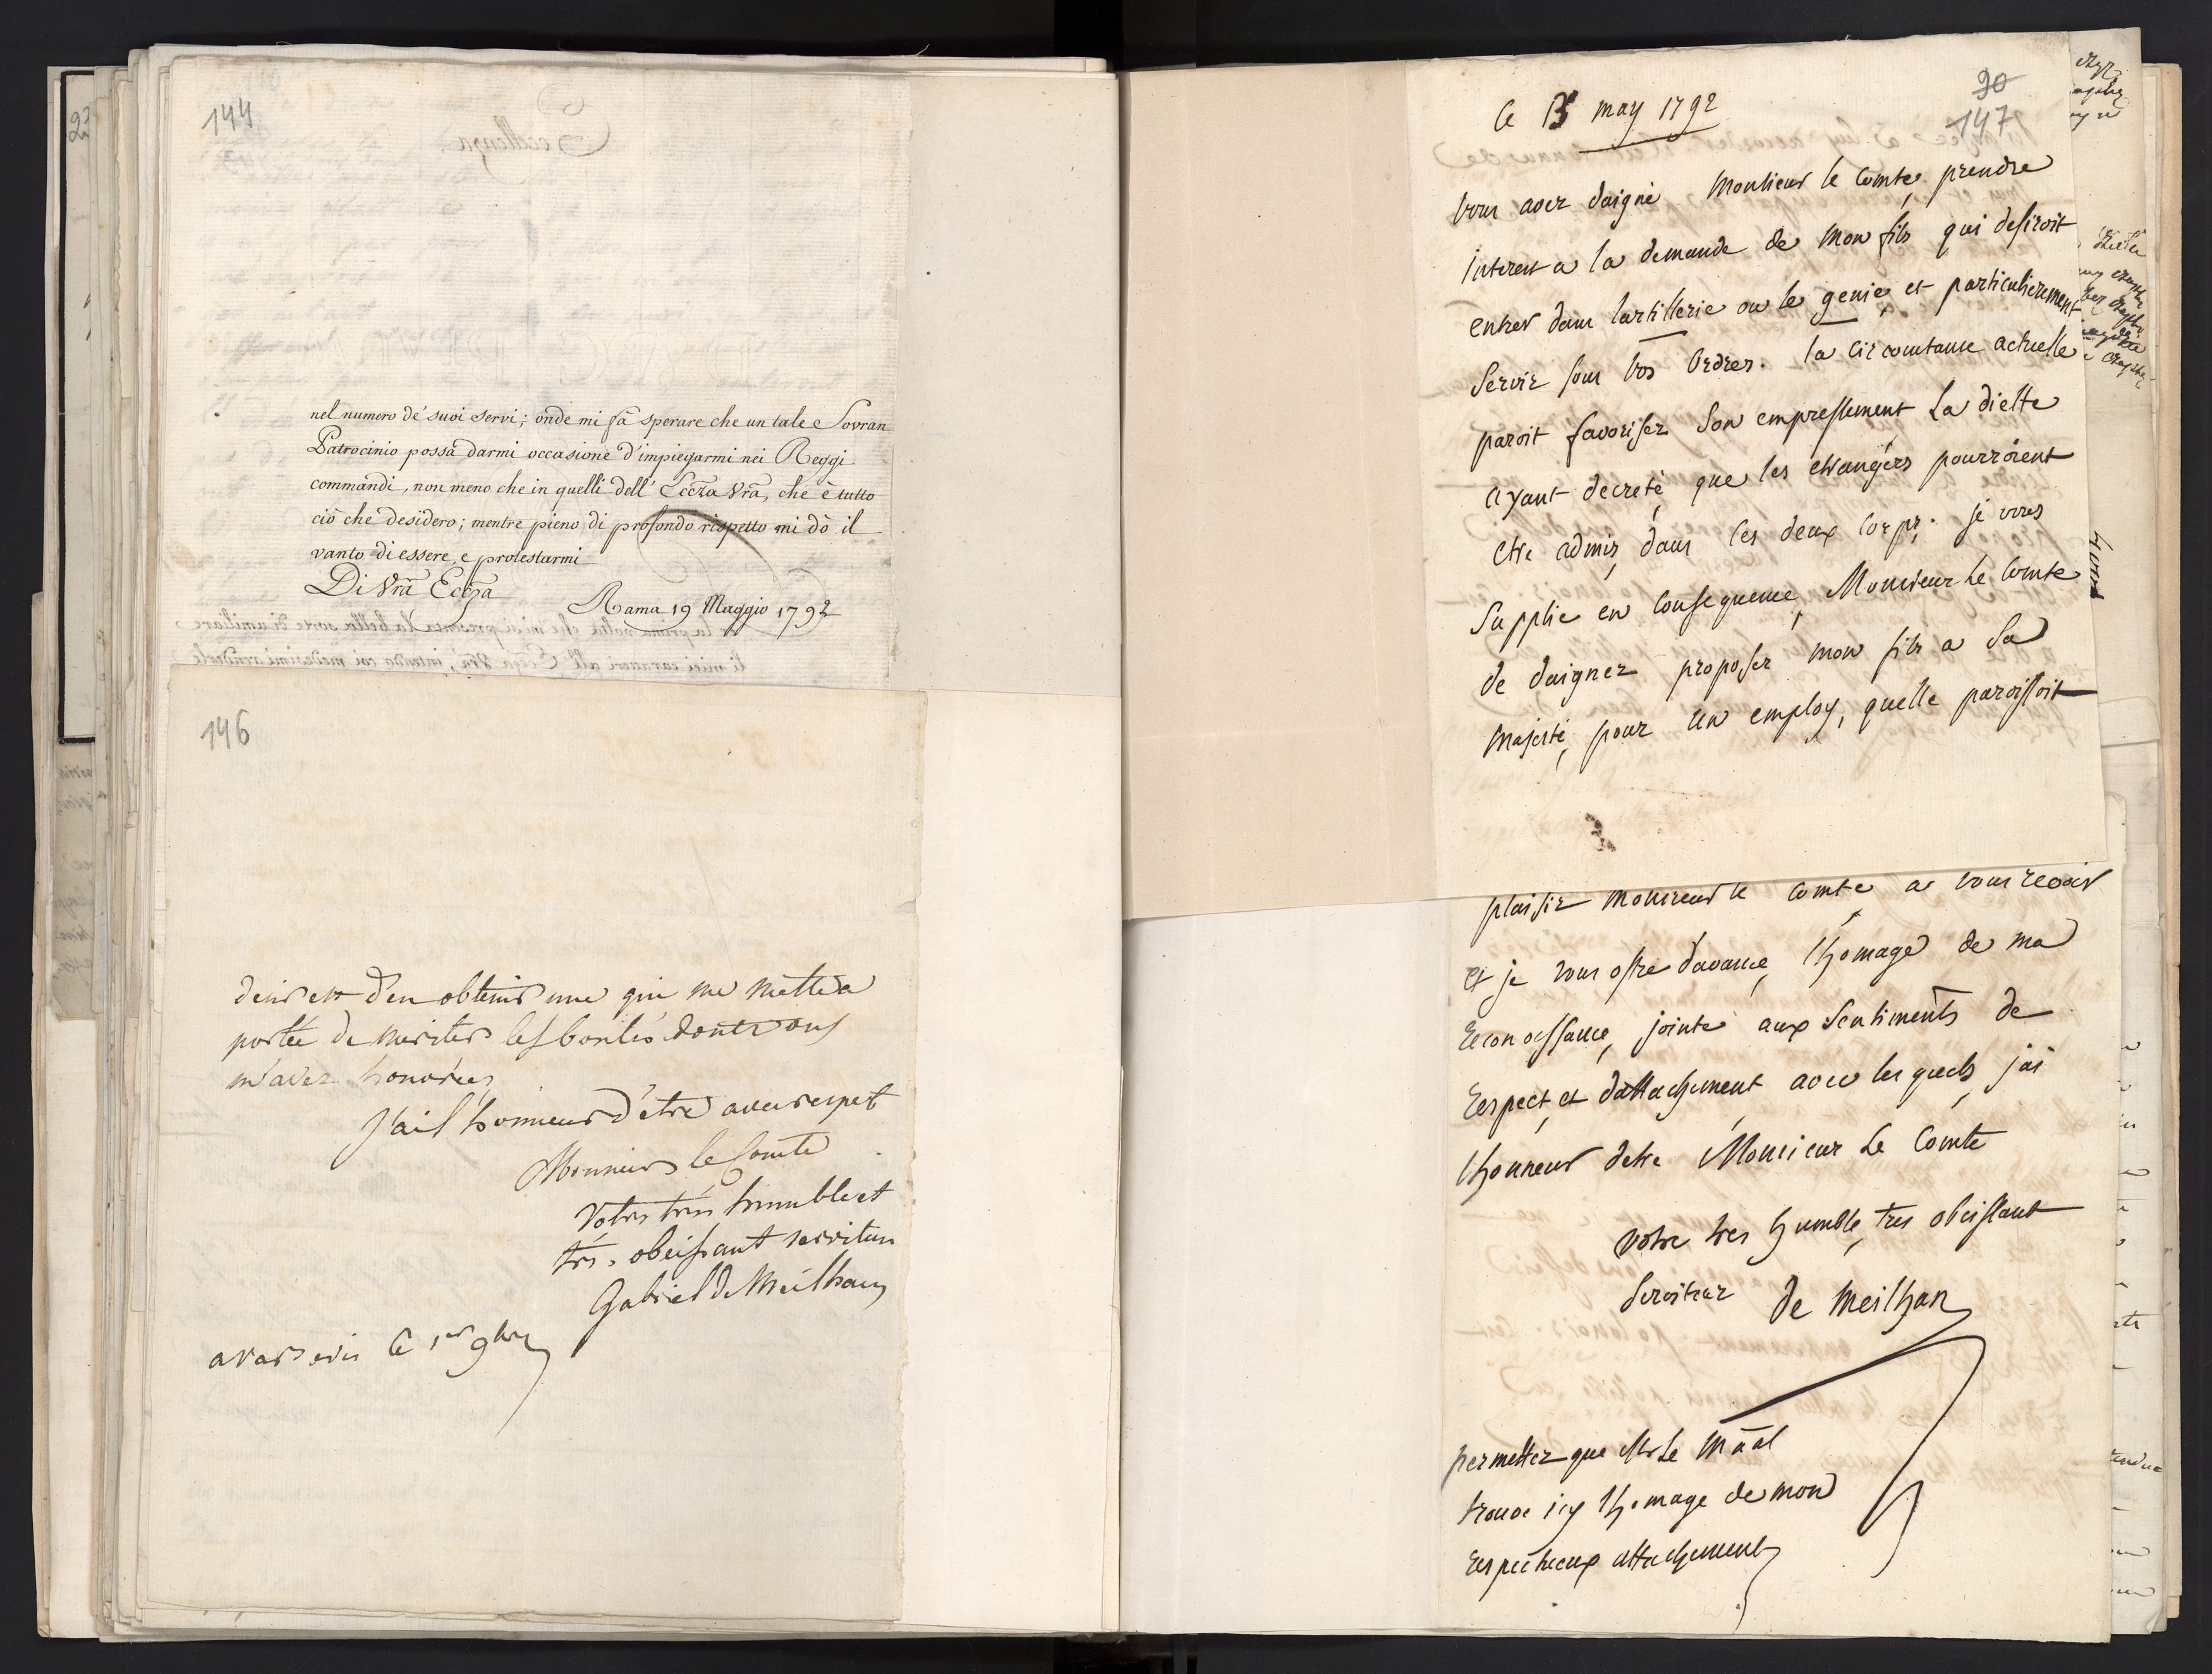 144
nel numero de' suoi servi; onde mi fà sperare che un tale e Sovran
Patrocinio possa darmi occasione d'impiegarmi nei Reggi
commandi, non meno che in quelli dell' Eccza Vrã, che è tutto
ciò che desidero; mentre pieno di profondo rispetto mi dò il
vanto di essere, e protestarmi
Di Vrã Eccza
Rama 19 Maggio 1792
146
desir est d'en obtenir une qui me mette a
portée de meriter les bontés dont vous
m'avez honorées
J'ai l'honneur d'etre avec respect
Monsieur le Comte
Votre trés humble et
trés obeissant serviteur
Gabriel de Meilhan
a varsovie le 1er 9bre
90
147
le 13 may 1792
vous avez daigné Monsieur le Comte, prendre
interest a la demande de mon fils qui desiroit
entrer dans lartillerie ou le genie, et particulierement
servir sous vos ordres. la circonstance actuelle
paroit favoriser son empressement La diette
ayant decreté, que les etrangérs pourroient
etre admis, dans ces deux corps. je vous
supplie en consequence, Monsieur Le Comte
de daigner proposer mon fils a Sa
Majesté, pour un employ, quelle paroissoit
plaisir Monsieur le comte a vous revoir
et je vous ofre davance, lhomage de ma
reconoissance, jointe aux sentiments de
respect, et dattachement avec les quels, jai
lhonneur detre Monsieur Le Comte
votre tres humble, tres obeissant
serviteur de Meilhan
permettez que Mr Le Māal
trouve icy lhomage de mon
respectueux attachement